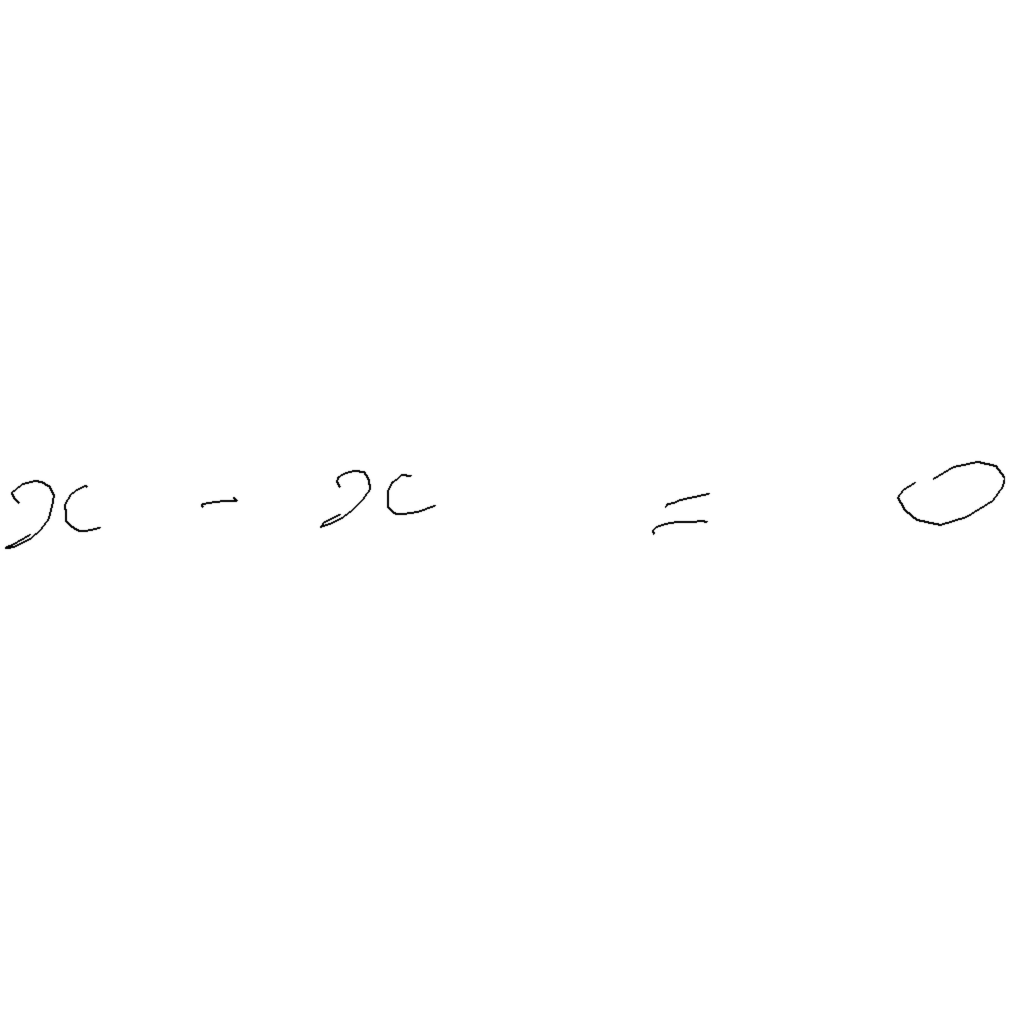 x - x = 0